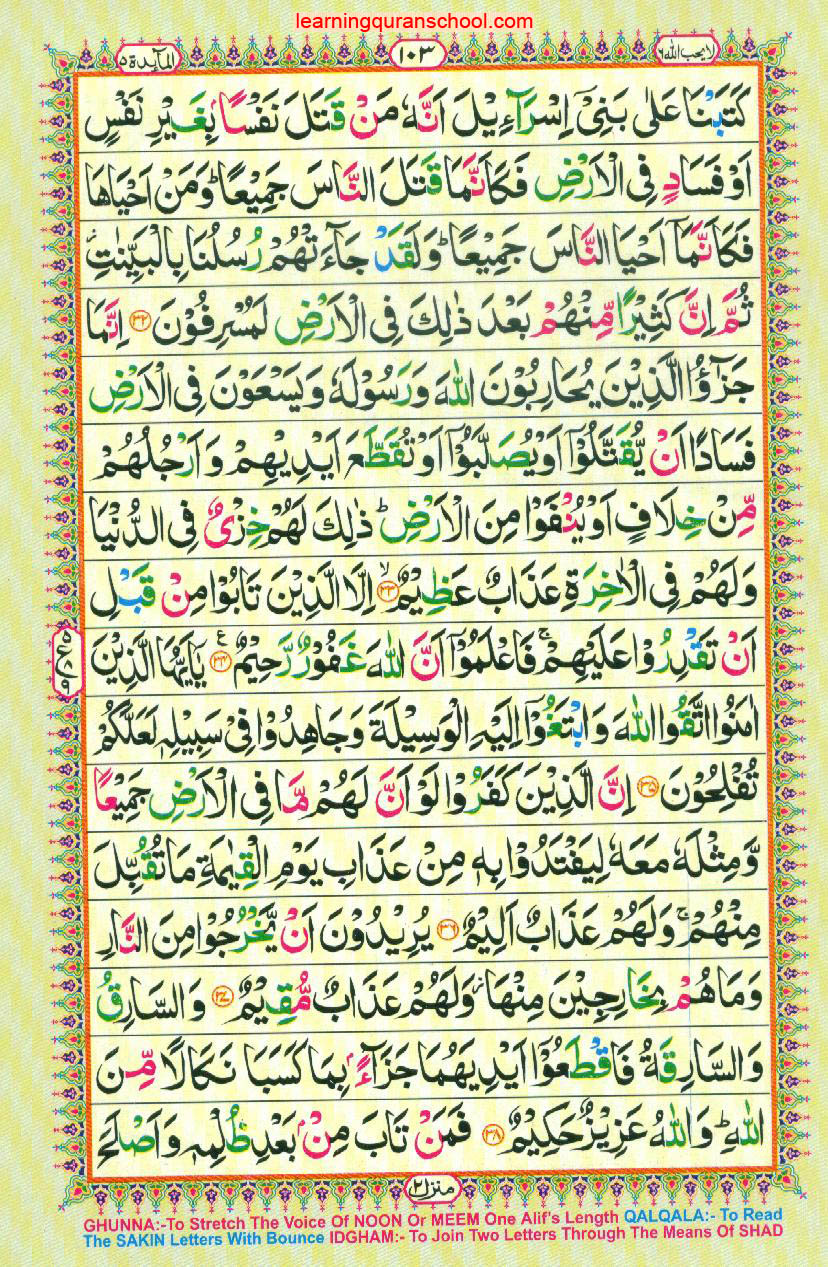 learningquranschool.com
لا يحب الله ٦ ١٠٣ المآىدة ٥
كَتَبْنَا عَلٰى بَنِىْۤ اِسْرَآءِيْلَ اَنَّهٗ مَنْ قَتَلَ نَفْسًۢا بِغَيْرِ نَفْسٍ
اَوْ فَسَادٍ فِى الْاَرْضِ فَكَاَنَّمَا قَتَلَ النَّاسَ جَمِيْعًا ؕ وَمَنْ اَحْيَاهَا
فَكَاَنَّمَاۤ اَحْيَا النَّاسَ جَمِيْعًا ؕ وَلَقَدْ جَآءَتْهُمْ رُسُلُنَا بِالْبَيِّنٰتِ ؗ
ثُمَّ اِنَّ كَثِيْرًا مِّنْهُمْ بَعْدَ ذٰلِكَ فِى الْاَرْضِ لَمُسْرِفُوْنَ ﴿۳۲﴾ اِنَّمَا
جَزٰٓؤُا الَّذِيْنَ يُحَارِبُوْنَ اللّٰهَ وَرَسُوْلَهٗ وَيَسْعَوْنَ فِى الْاَرْضِ
فَسَادًا اَنْ يُّقَتَّلُوْۤا اَوْ يُصَلَّبُوْۤا اَوْ تُقَطَّعَ اَيْدِيْهِمْ وَاَرْجُلُهُمْ
مِّنْ خِلَافٍ اَوْ يُنْفَوْا مِنَ الْاَرْضِ ؕ ذٰلِكَ لَهُمْ خِزْىٌ فِى الدُّنْيَا
وَلَهُمْ فِى الْاٰخِرَةِ عَذَابٌ عَظِيْمٌ ۙ﴿۳۳﴾ اِلَّا الَّذِيْنَ تَابُوْا مِنْ قَبْلِ
اَنْ تَقْدِرُوْا عَلَيْهِمْ ۚ فَاعْلَمُوْۤا اَنَّ اللّٰهَ غَفُوْرٌ رَّحِيْمٌ ﴿۳۴﴾ ع يٰۤاَيُّهَا الَّذِيْنَ
٥ ع ٨ ٩
اٰمَنُوا اتَّقُوا اللّٰهَ وَابْتَغُوْۤا اِلَيْهِ الْوَسِيْلَةَ وَجَاهِدُوْا فِىْ سَبِيْلِهٖ لَعَلَّكُمْ
تُفْلِحُوْنَ ﴿۳۵﴾ اِنَّ الَّذِيْنَ كَفَرُوْا لَوْ اَنَّ لَهُمْ مَّا فِى الْاَرْضِ جَمِيْعًا
وَّمِثْلَهٗ مَعَهٗ لِيَفْتَدُوْا بِهٖ مِنْ عَذَابِ يَوْمِ الْقِيٰمَةِ مَا تُقُبِّلَ
مِنْهُمْ ۚ وَلَهُمْ عَذَابٌ اَلِيْمٌ ﴿۳۶﴾ يُرِيْدُوْنَ اَنْ يَّخْرُجُوْا مِنَ النَّارِ
وَمَا هُمْ بِخَارِجِيْنَ مِنْهَا ؗ وَلَهُمْ عَذَابٌ مُّقِيْمٌ ﴿۳۷﴾ وَالسَّارِقُ
وَالسَّارِقَةُ فَاقْطَعُوْۤا اَيْدِيَهُمَا جَزَآءًۢ بِمَا كَسَبَا نَكَالًا مِّنَ
اللّٰهِ ؕ وَاللّٰهُ عَزِيْزٌ حَكِيْمٌ ﴿۳۸﴾ فَمَنْ تَابَ مِنْۢ بَعْدِ ظُلْمِهٖ وَاَصْلَحَ
منزل ٢
GHUNNA:-To Stretch The Voice Of NOON Or MEEM One Alif's Length QALQALA:- To Read
The SAKIN Letters With Bounce IDGHAM:- To Join Two Letters Through The Means Of SHAD